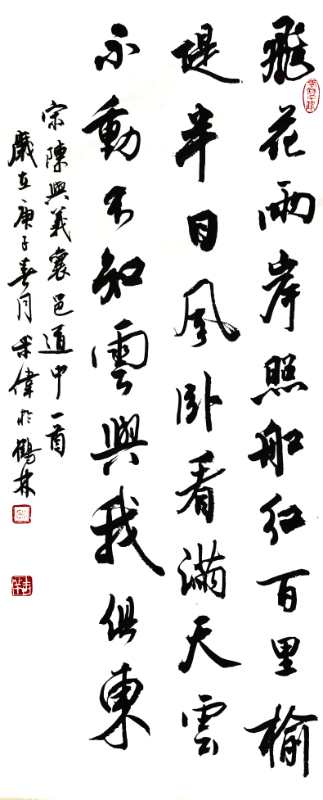 飛花兩岸照船紅百里榆
堤半日風卧看滿天雲
不動不知雲與我俱東
宋陳與義襄邑道中一首
歲在庚子春月榮偉於鶴林